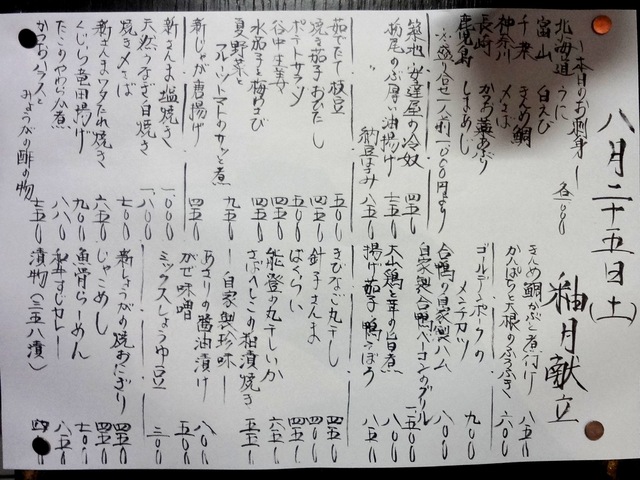 八月二十五日(土)
釉月献立
〜本日のお刺身〜
北海道 うに
富山 白えび 各一、一〇〇
千葉 きんめ鯛
神奈川 〆さば
長崎 かつを藁あぶり
鹿児島 しまあじ
※盛り合せ一人前一、〇〇〇円より
築地・安達屋の冷奴 四五〇
栃尾のぶ厚い油揚げ 七五〇
〃 納豆包み 八五〇
茹でたて枝豆 五〇〇
焼き茄子おひたし 四五〇
ポテトサラダ 五〇〇
谷中生姜 四五〇
水茄子と梅わさび 四五〇
夏野菜と
フルーツトマトのサッと煮 九五〇
新じゃが唐揚げ 四五〇
新さんま塩焼き 一、〇〇〇
天然うなぎ白焼き 一、八〇〇
焼き〆さば 七〇〇
新さんまワタたれ焼き 六五〇
くじら竜田揚げ 九〇〇
たこのやわらか煮 八八〇
かつおハラスと
みょうがの酢の物 七五〇
きんめ鯛かぶと煮付け 八五〇
かんぱちと大根のふろふき 六〇〇
ゴールデンポークの
メンチカツ 九〇〇
合鴨の自家製ハム 八〇〇
自家製合鴨ベーコンのグリル 一、五〇〇
大山鶏と茸の旨煮 八〇〇
揚げ茄子 鴨そぼろ 八五〇
きびなご丸干し 四五〇
針子さんま 四〇〇
はくらい 四五〇
能登の丸干しいか 六五〇
さばへしこの粕漬焼き 五五〇
〜自家製珍味〜
あさりの醤油漬け 八〇〇
がぜ味噌 五〇〇
ミックスしょうゆ豆 三〇〇
新しょうがの焼おにぎり 四五〇
じゃこめし 四五〇
魚骨らーめん 七〇〇
和牛すじカレー 八五〇
漬物(三五八漬)